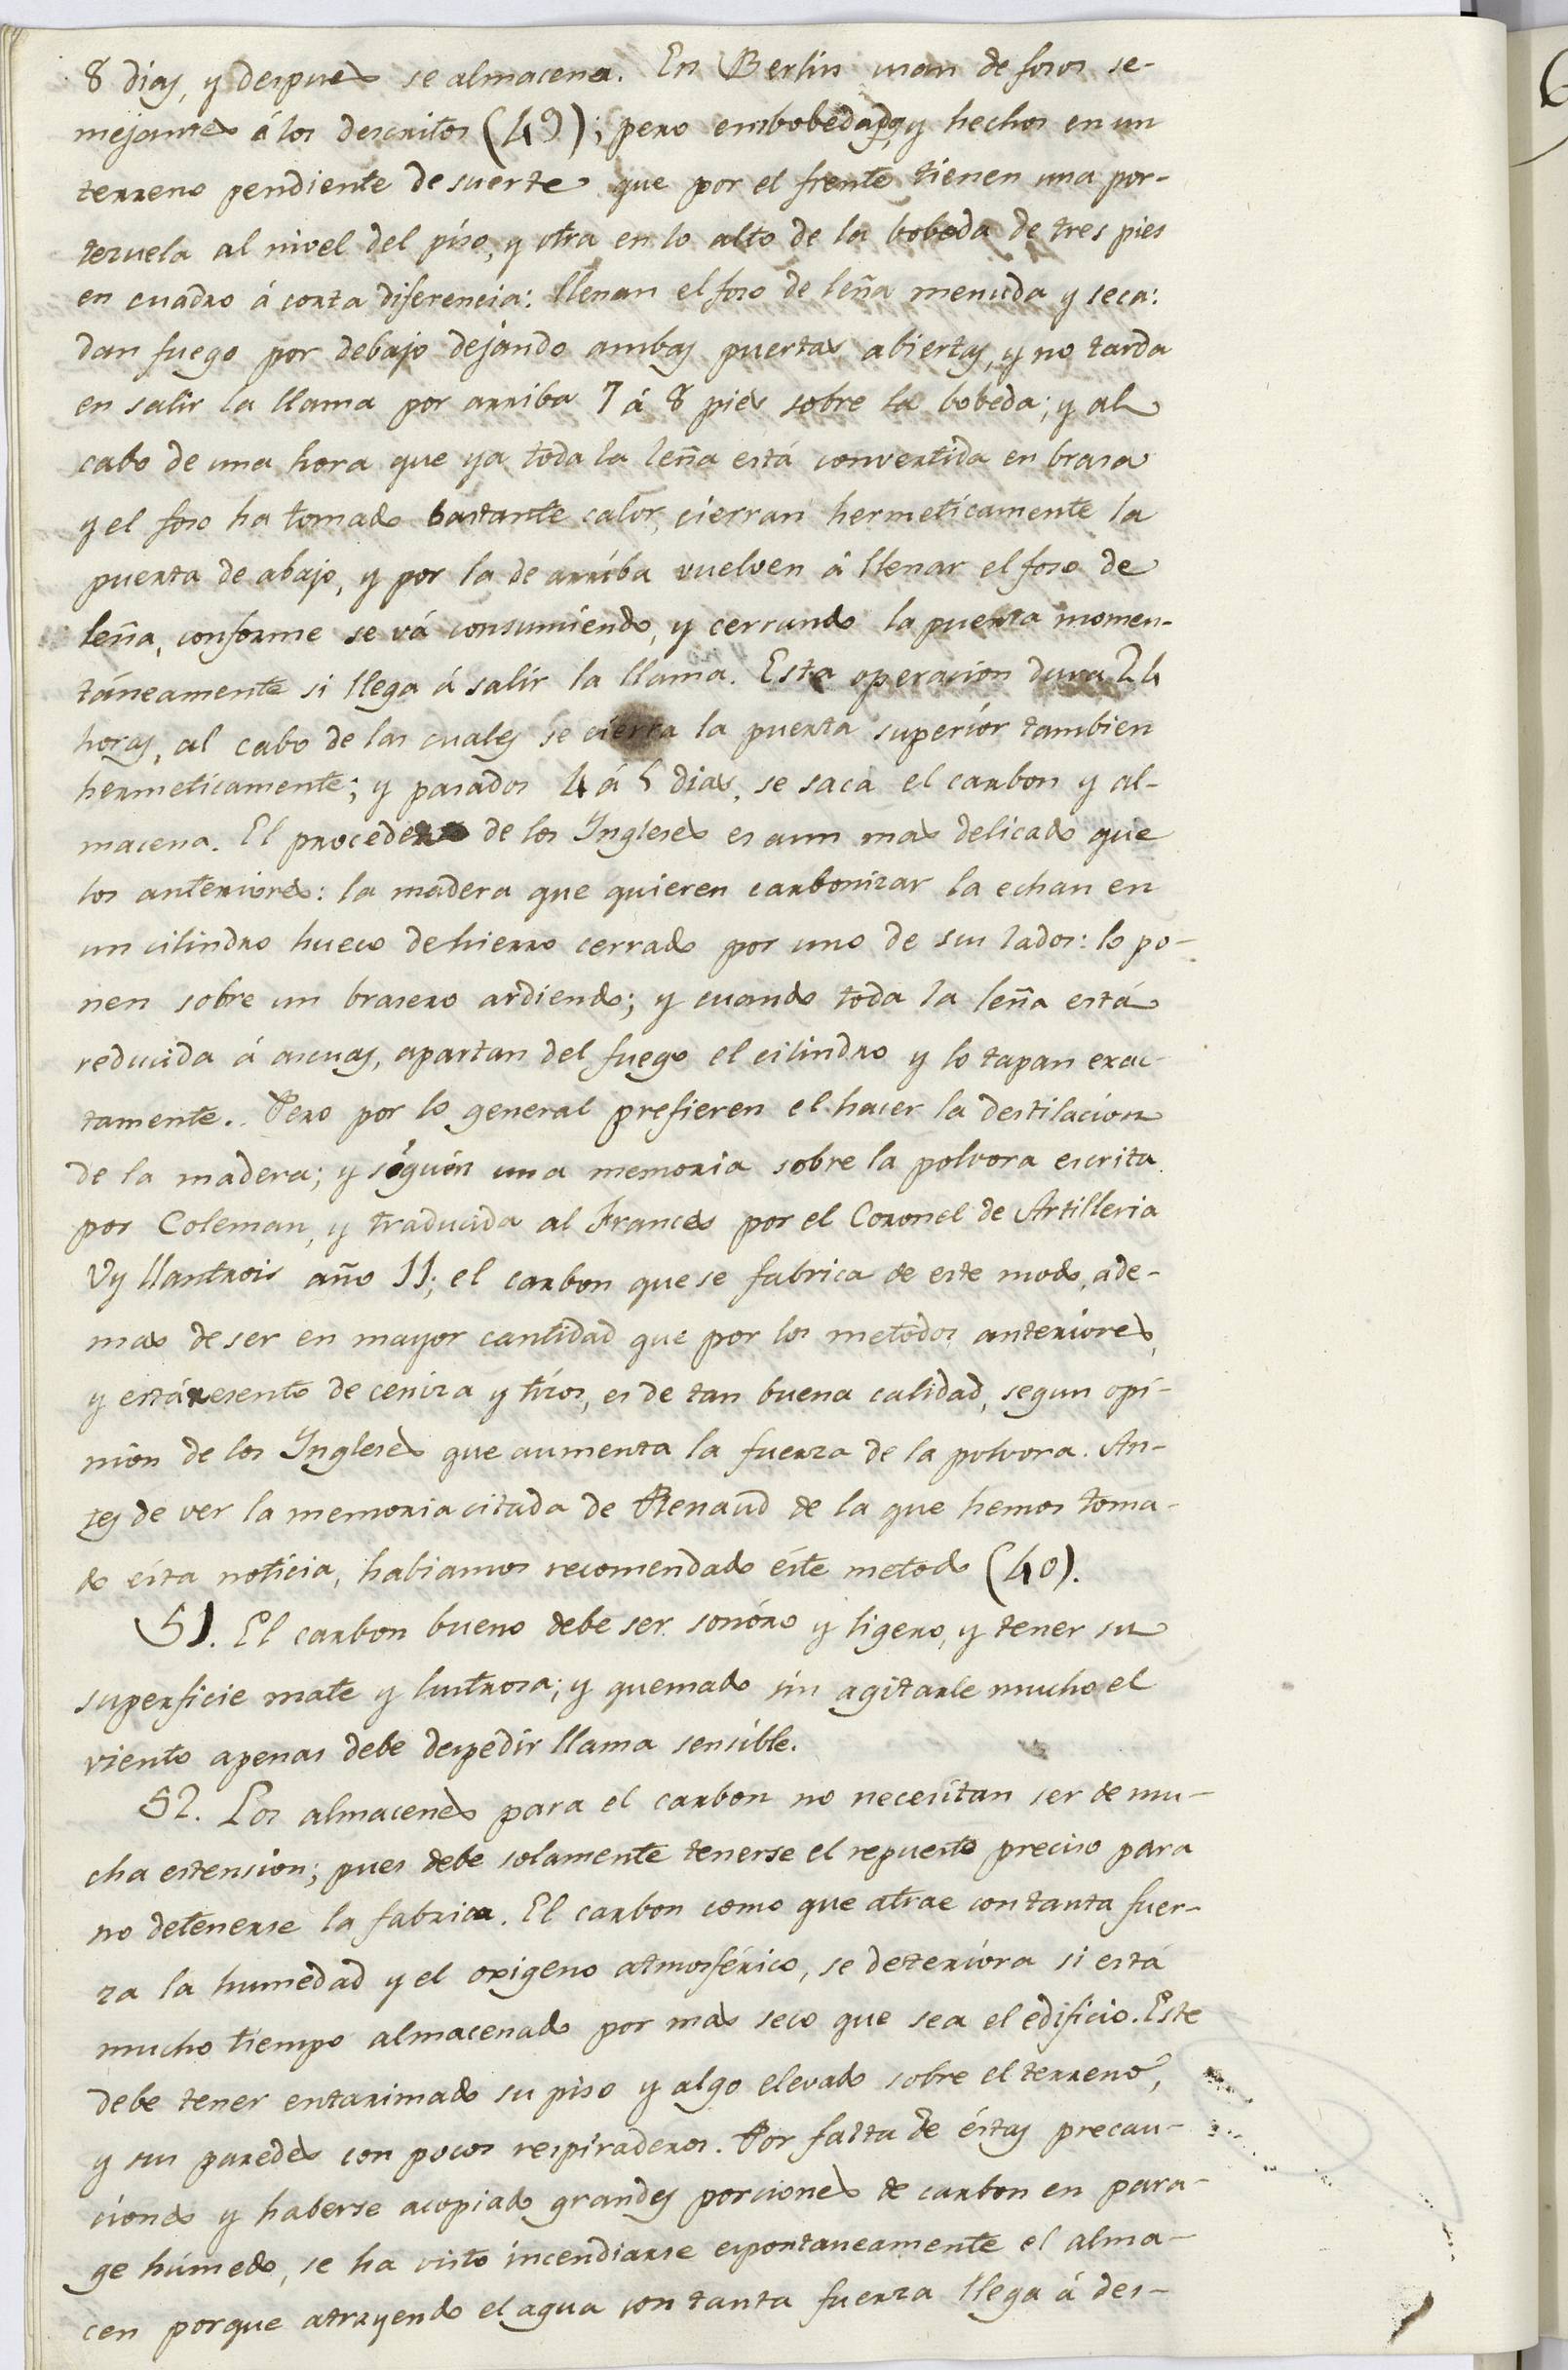 8 dias, y despues se almacena. En Berlin usan de fosos se-
mejantes á los descritos (49); pero embobedados, y hechos en un
terreno pendiente de suerte que por el frente tienen una por-
tezuela al nivel del piso, y otra en lo alto de la bobeda de tres pies
en cuadro á corta diferencia: llenan el foso de leña menuda y seca:
dan fuego por debajo dejando ambas puertas abiertas, y no tarda
en salir la llama por arriba 7 á 8 pies sobre la bobeda; y al
cabo de una hora que ya toda la leña está convertida en brasa
y el foso ha tomado bastante calor, cierran hermeticamente la
puerta de abajo, y por la de arriba vuelven á llenar el foso de
leña, conforme se vá consumiendo, y cerrando la puerta momen-
táneamente si llega á salir la llama. Esta operacion dura 24
horas, al cabo de las cuales se cierra la puerta superior tambien
hermeticamente; y pasados 4 á 5 dias, se saca el carbon y al-
macena. El proceder de los Yngleses es aun mas delicado que
los anteriores: la madera que quieren carbonizar la echan en
un cilindro hueco de hierro cerrado por uno de sus lados: lo po-
nen sobre un brasero ardiendo; y cuando toda la leña está
reducida á ascuas, apartan del fuego el cilindro y lo tapan exac-
tamente. Pero por lo general prefieren el hacer la destilacion
de la madera; y ségun una memoria sobre la polvora escrita
por Coleman, y traducida al Frances por el Coronel de Artilleria
Vyllantrois año 11; el carbon que se fabrica de este modo, ade-
mas de ser en mayor cantidad que por los metodos anteriores,
y está esento de ceniza y tizos, es de tan buena calidad, segun opi-
nion de los Yngleses que aumenta la fuerza de la polvora. An-
tes de ver la memoria citada de Renaud de la que hemos toma-
do ésta noticia, habiamos recomendado éste metodo (40).
51. El carbon bueno debe ser sonóro y ligero, y tener su
superficie mate y lustrosa; y quemado sin agitarle mucho el
viento apenas debe despedir llama sensible.
52. Los almacenes para el carbon no necesitan ser de mu-
cha estension; pues debe solamente tenerse el repuesto preciso para
no detenerse la fabrica. El carbon como que atrae con tanta fuer-
za la humedad y el oxigeno atmosférico, se deteriora si está
mucho tiempo almacenado por mas seco que sea el edificio. Este
debe tener entarimado su piso y algo elevado sobre el terreno,
y sus paredes con pocos respiraderos. Por falta de éstas precau-
ciones y haberse acopiado grandes porciones de carbon en para-
ge húmedo, se ha visto incendiarse espontaneamente el alma-
cen porque atrayendo el agua con tanta fuerza llega á des-